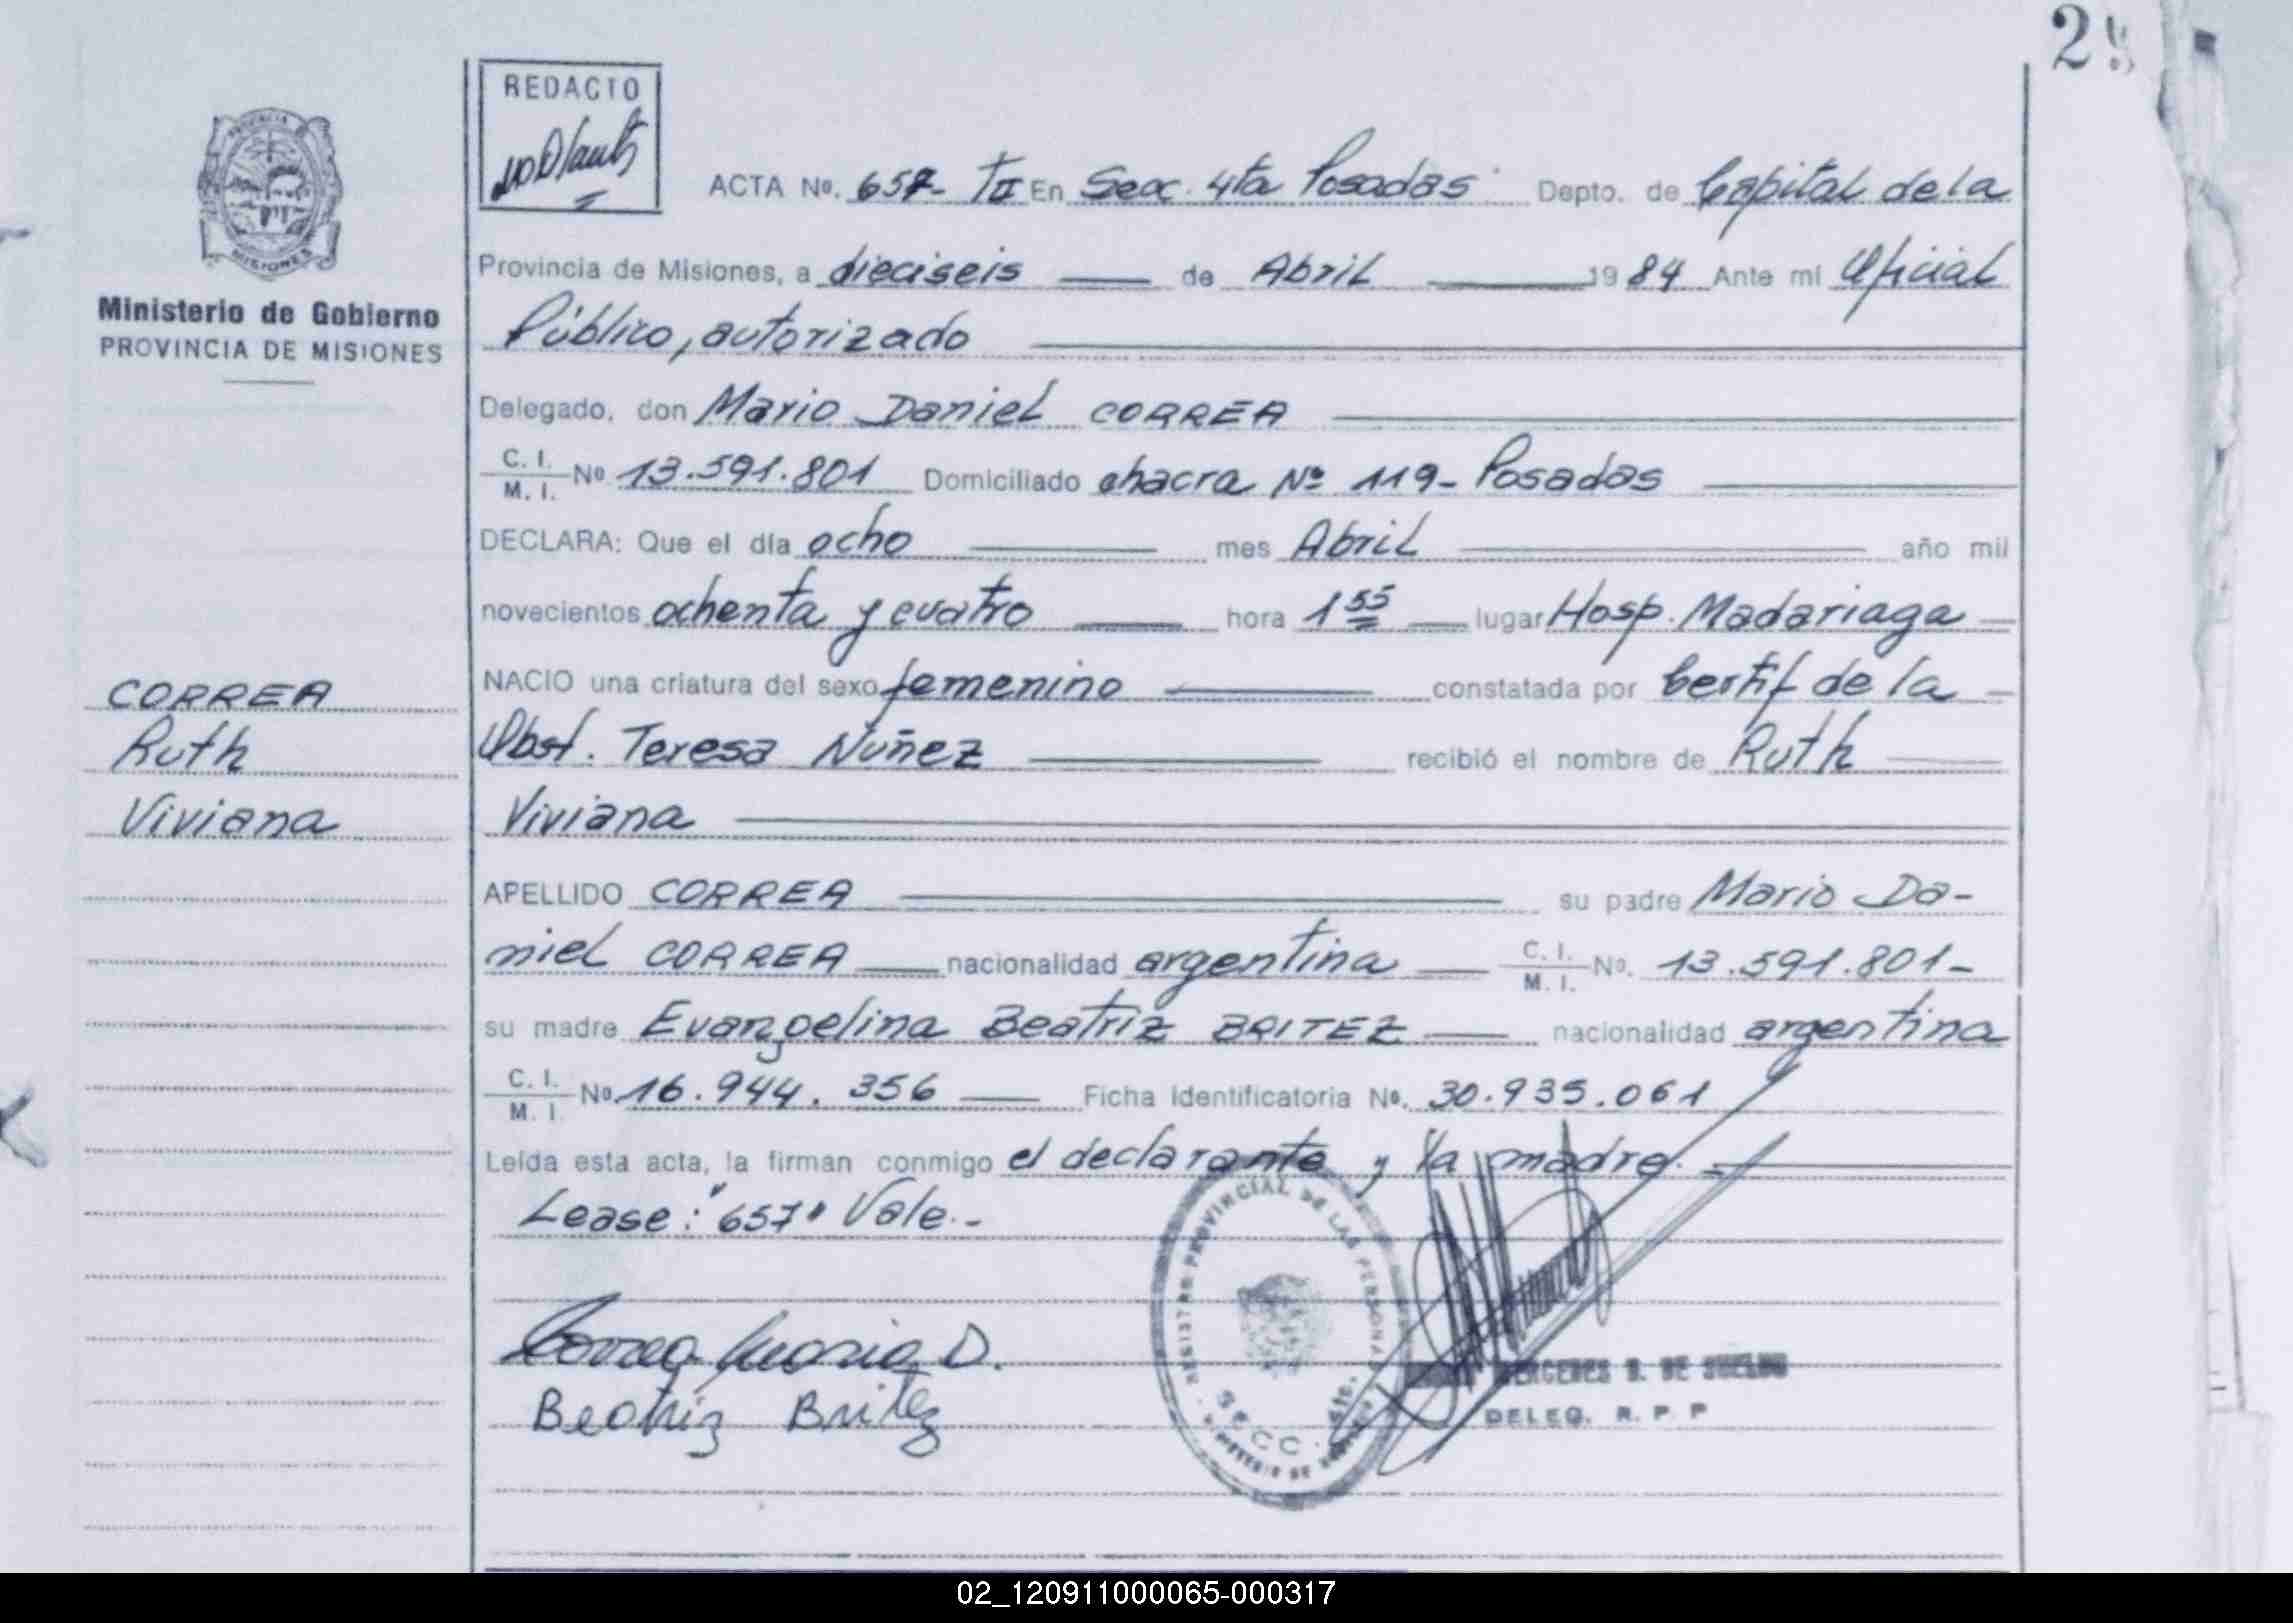 2
REDACTO
ACTA Nº. 657- TII En Secc. 4ta Posadas Depto. de Capital de la
Provincia de Misiones, a dieciseis de Abril 1984 Ante mi Oficial
Público, autorizado
PROVINCIA
MISIONES
Ministerio de Gobierno
PROVINCIA DE MISIONES
Delegado, don Mario Daniel CORREA
C. I.
M. I. Nº 13.591.801 Domiciliado chacra Nº 119- Posadas
DECLARA: Que el día ocho mes Abril año mil
novecientos ochenta y cuatro hora 1 55 lugar Hosp. Madariaga
NACIO una criatura del sexo femenino constatada por Certif de la
Obst. Teresa Nuñez recibió el nombre de Ruth
Viviana
CORREA
Ruth
Viviana
APELLIDO CORREA su padre Mario Da-
niel CORREA nacionalidad argentina C. I. M. I. Nº. 13.591.801-
su madre Evangelina Beatriz BRITEZ nacionalidad argentina
C. I.
M. I. Nº. 16.944.356 Ficha Identificatoria Nº. 30.935.061
Leída esta acta, la firman conmigo el declarante y la madre.-
Lease: "657" Vale.-
Correa Mario D.
Beatriz Britez
REGISTRO PROVINCIAL DE LAS PERSONAS
SECC. 4ta.
DE SUELDO
DELEG. R. P. P
02_120911000065-000317